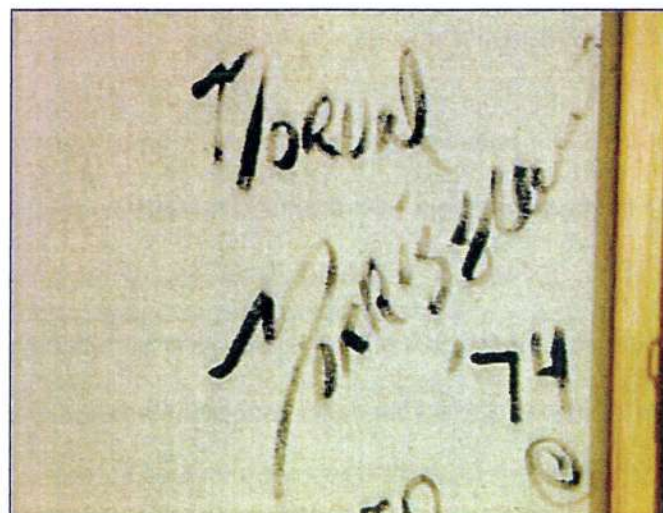 Norval
Morrisseau
'74
©